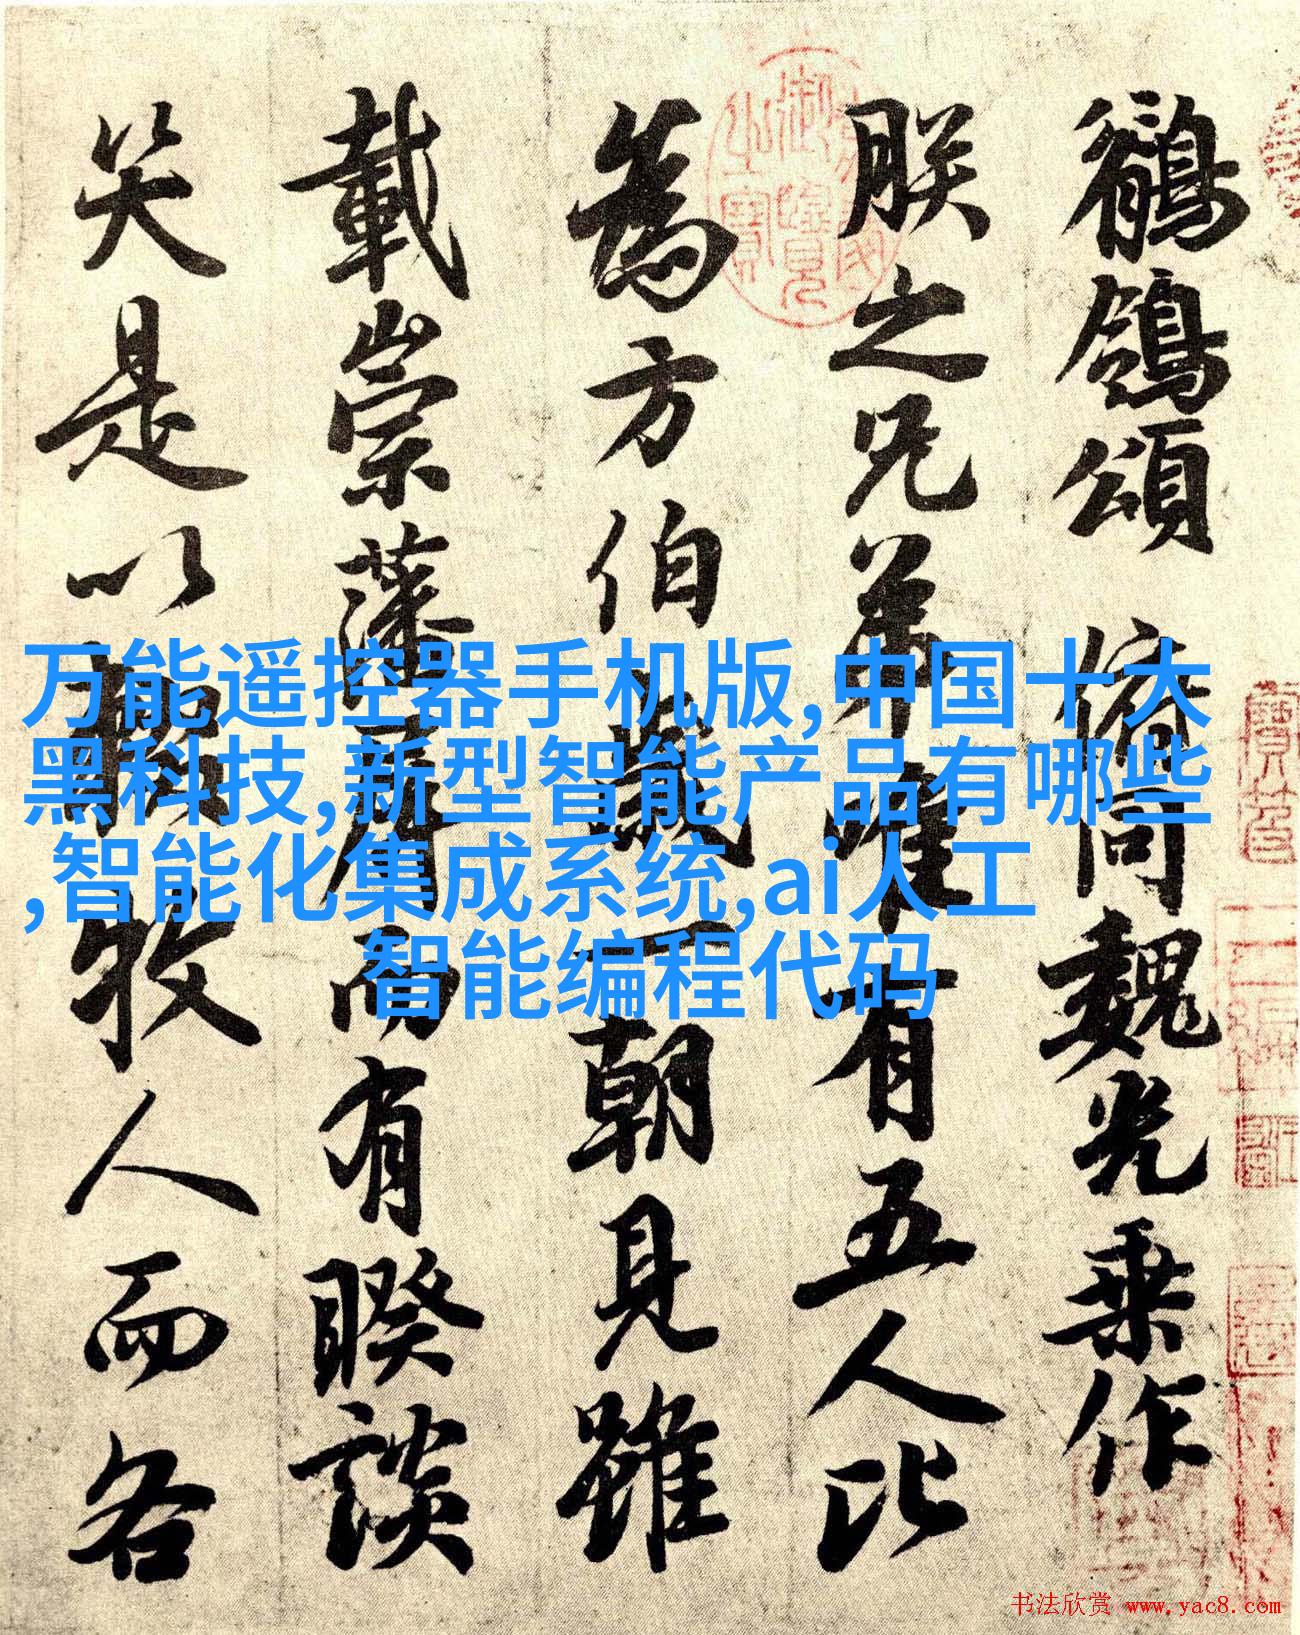 鶺鴒頌 俯同魏光乗作
朕之兄弟唯有五人比
為方伯歲一朝見雖
載崇藩屏而有睽談
笑是以輟牧人而各
万能遥控器手机版,中国十大
黑科技,新型智能产品有哪些
,智能化集成系统,ai人工
智能编程代码
书法欣赏 www.yac8.com